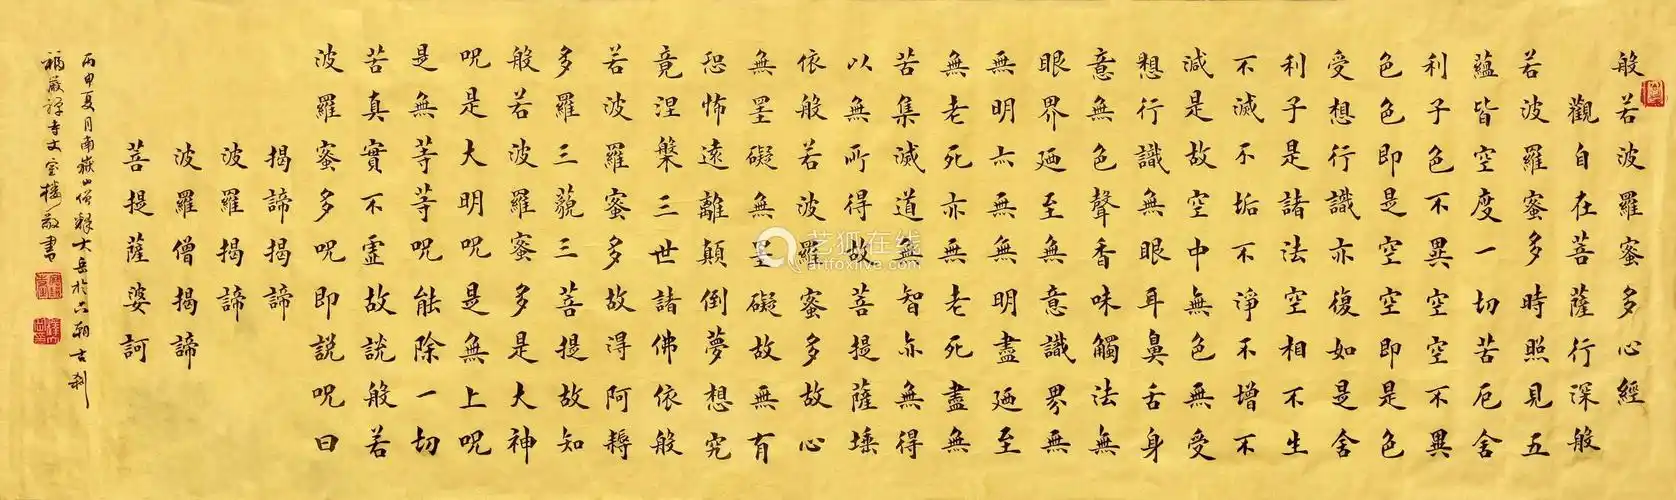 般若波羅蜜多心經
觀自在菩薩行深般
若波羅蜜多時照見五
蘊皆空度一切苦厄舍
利子色不異空空不異
色色即是空空即是色
受想行識亦復如是舍
利子是諸法空相不生
不滅不垢不淨不增不
減是故空中無色無受
想行識無眼耳鼻舌身
意無色聲香味觸法無
眼界廼至無意識界無
無明亦無無明盡廼至
無老死亦無老死盡無
苦集滅道無智亦無得
以無所得故菩提薩埵
依般若波羅蜜多故心
無罣礙無罣礙故無有
恐怖遠離顛倒夢想究
竟涅槃三世諸佛依般
若波羅蜜多故得阿耨
多羅三藐三菩提故知
般若波羅蜜多是大神
呪是大明呪是無上呪
是無等等呪能除一切
苦真實不虛故說般若
波羅蜜多呪即說呪曰
揭諦揭諦
波羅揭諦
波羅僧揭諦
菩提薩婆訶
丙申夏月南嶽山僧釋大岳於六朝古剎
福嚴禪寺文宝樓敬書
艺狐在线
artfoxlive.com